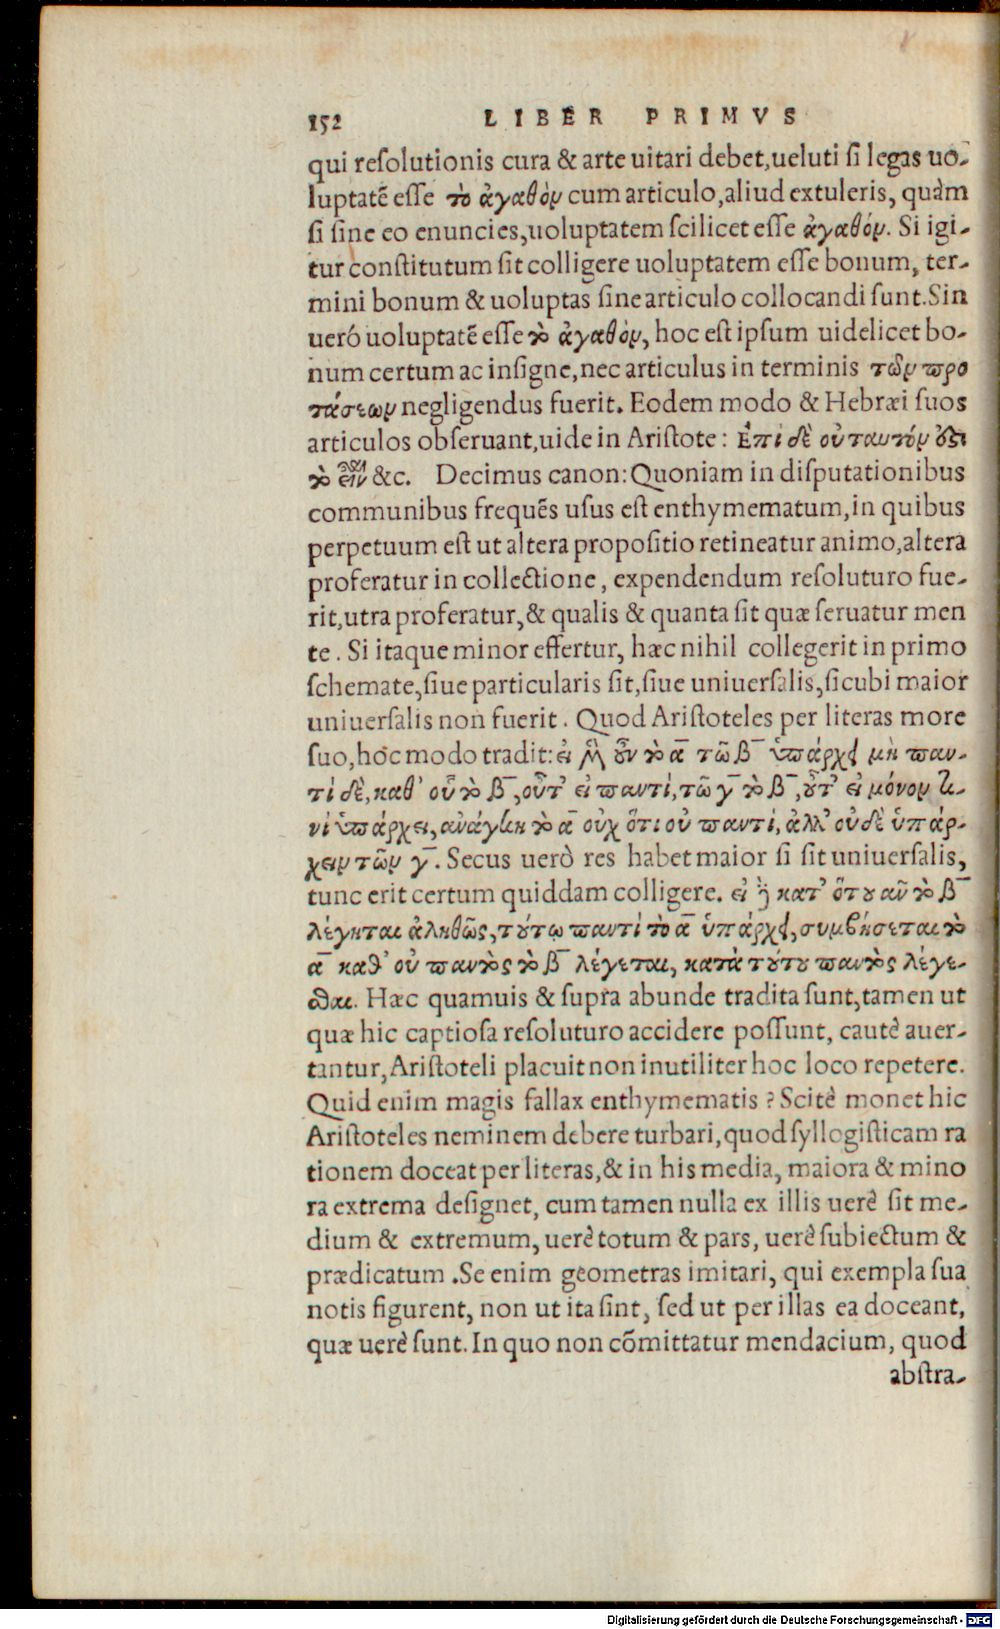 152 LIBER PRIMVS
qui reſolutionis cura & arte uitari debet,ueluti ſi legas uo-
luptatē eſſe τὸ ἀγαθὸν cum articulo,aliud extuleris, quàm
ſi ſine eo enuncies,uoluptatem ſcilicet eſſe ἀγαθόν. Si igi-
tur conſtitutum ſit colligere uoluptatem eſſe bonum, ter-
mini bonum & uoluptas ſine articulo collocandi ſunt.Sin
ueró uoluptatē eſſe τὸ ἀγαθὸν, hoc eſt ipſum uidelicet bo-
num certum ac inſigne,nec articulus in terminis τῶν προ
τάσεων negligendus fuerit. Eodem modo & Hebræi ſuos
articulos obſeruant,uide in Ariſtote: Ἐπὶ δὲ οὐ ταυτόν ὅτι
τὸ εἶν &c. Decimus canon:Quoniam in diſputationibus
communibus frequēs uſus eſt enthymematum,in quibus
perpetuum eſt ut altera propoſitio retineatur animo,altera
proferatur in collectione, expendendum reſoluturo fue-
rit,utra proferatur,& qualis & quanta ſit quæ ſeruatur men
te. Si itaque minor effertur, hæc nihil collegerit in primo
ſchemate,ſiue particularis ſit,ſiue uniuerſalis,ſicubi maior
uniuerſalis non fuerit. Quod Ariſtoteles per literas more
ſuo,hoc modo tradit: εἰ μὲν οὖν τὸ α τῶ β ὑπάρχει μὴ παν-
τὶ δὲ,καθ' οὗ τὸ β,οὔτ' εἰ παντὶ,τῶ γ τὸ β,οὔτ' εἰ μόνον τι-
νὶ ὑπάρχει,ἀνάγκη τὸ α οὐχ ὅτι οὐ παντὶ,ἀλλ' οὐδὲ ὑπάρ-
χειν τῶν γ. Secus uerò res habet maior ſi ſit uniuerſalis,
tunc erit certum quiddam colligere. εἰ γὰρ κατ' ὅτου ἂν τὸ β
λέγηται ἀληθῶς,τούτῳ παντὶ τὸ α ὑπάρχει,συμβήσεται τὸ
α καθ' οὗ παντὸς τὸ β λέγεται, κατὰ τούτου παντὸς λέγε-
σθαι. Hæc quamuis & ſupra abunde tradita ſunt,tamen ut
quæ hic captioſa reſoluturo accidere poſſunt, cautè auer-
tantur,Ariſtoteli placuit non inutiliter hoc loco repetere.
Quid enim magis fallax enthymematis ? Scitè monet hic
Ariſtoteles neminem debere turbari,quod ſyllogiſticam ra
tionem doceat per literas,& in his media, maiora & mino
ra extrema deſignet, cum tamen nulla ex illis uerè ſit me-
dium & extremum, uerè totum & pars, uerè ſubiectum &
prædicatum .Se enim geometras imitari, qui exempla ſua
notis figurent, non ut ita ſint, ſed ut per illas ea doceant,
quæ uerè ſunt. In quo non cōmittatur mendacium, quod
abſtra-
Digitalisierung gefördert durch die Deutsche Forschungsgemeinschaft - DFG